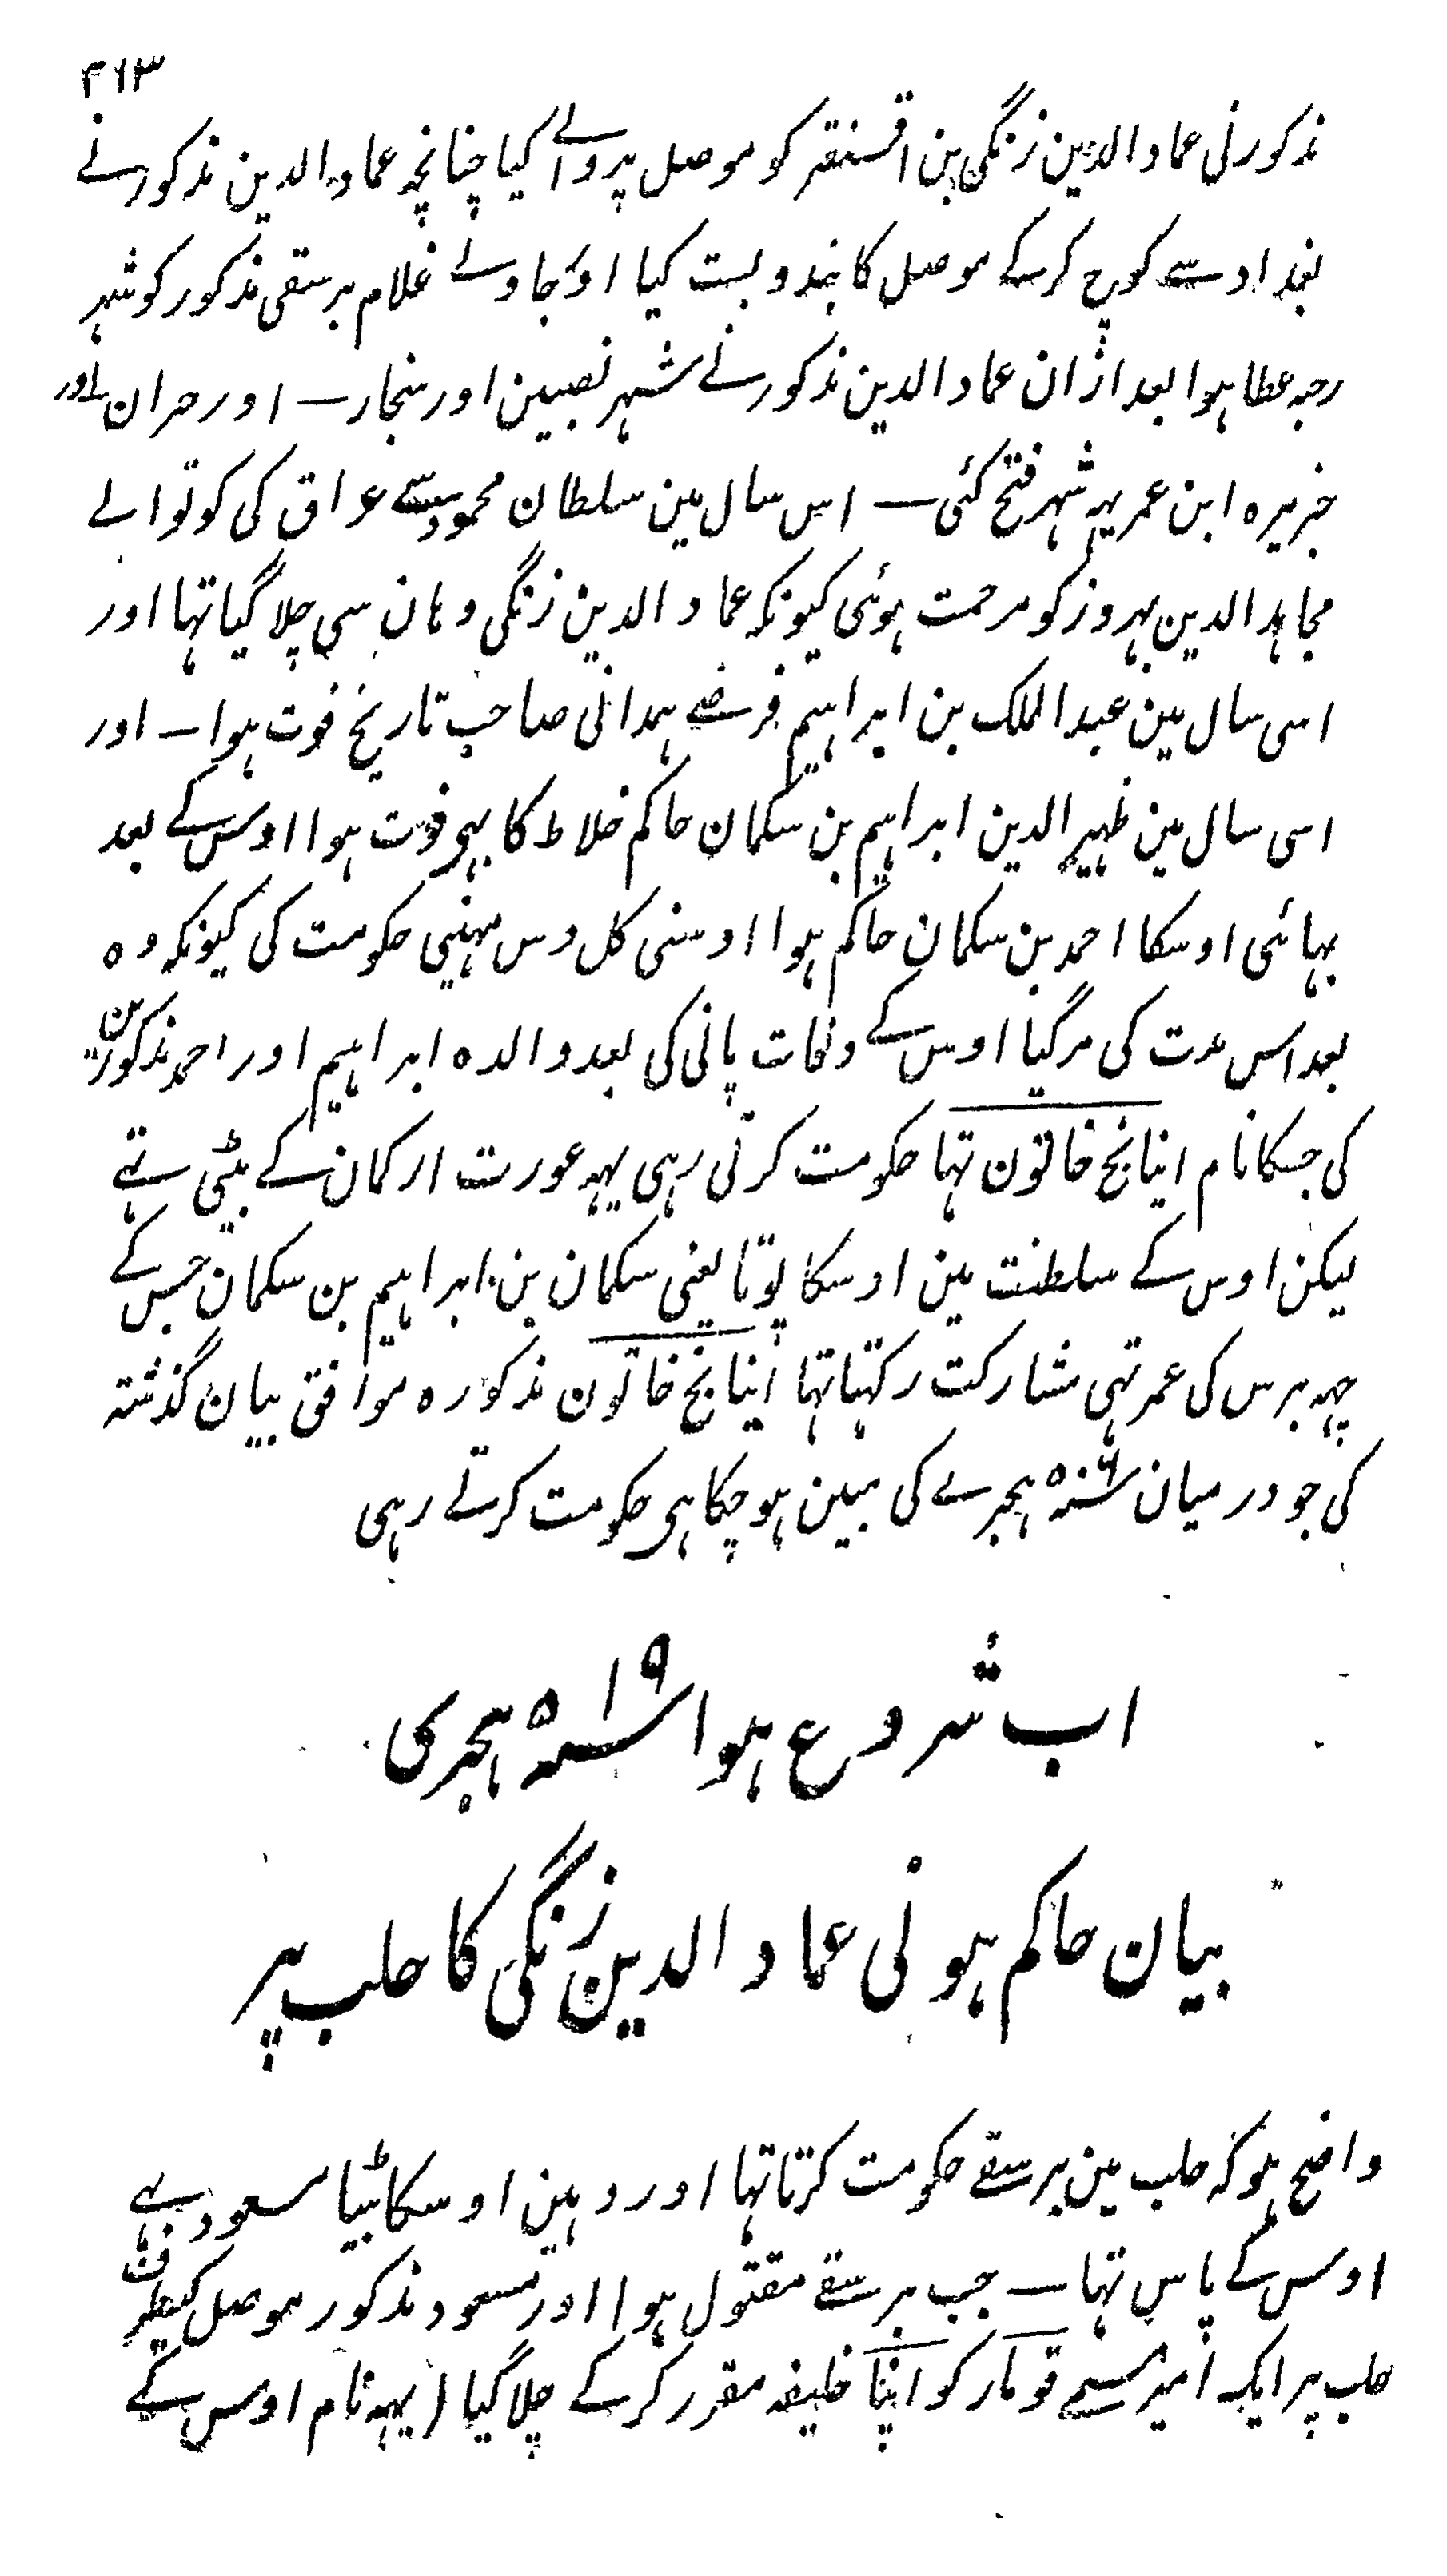 ۴۱۳
مذکور نی عماد الدین زنگی بن اقسنقر کو موصل پر والے کیا چنانچہ عماد الدین مذکور نے
بغداد سے کوچ کر کے موصل کا بندوبست کیا اور جاولے غلام برسقی مذکور کو شہر
رحبہ عطا ہوا بعد ازان عماد الدین مذکور نے شہر نصیبین اور سنجار ــ اور حران اور
جزیرہ ابن عمر یہہ شہر فتح کئی ــ اس سال مین سلطان محمود سے عراق کی کوتوالے
مجاہد الدین بہروز کو مرحمت ہوئی کیونکہ عماد الدین زنگی وہان سی چلا گیا تہا اور
اسی سال مین عبد الملک بن ابراہیم فرضے ہمدانی صاحب تاریخ فوت ہوا ــ اور
اسی سال مین ظہیر الدین ابراہیم بن سکمان حاکم خلاط کا بہی فوت ہوا اوس کے بعد
بہائی اوسکا احمد بن سکمان حاکم ہوا اوسنی کل دس مہینی حکومت کی کیونکہ وہ
بعد اس مدت کی مر گیا اوس کے وفات پانی کی بعد والدہ ابراہیم اور احمد مذکورین
کی جسکا نام اینانج خاتون تہا حکومت کرتی رہی یہہ عورت ارکمان کے بیٹی تہے
لیکن اوس کے سلطنت مین اوسکا پوتا یعنی سکمان بن ابراہیم بن سکمان جس کے
چہہ برس کی عمر تہی مشارکت رکہتا تہا اینانج خاتون مذکورہ موافق بیان گذشتہ
کی جو درمیان سنہ ۵۰۶ ہجرے کی مبین ہو چکا ہی حکومت کرتے رہی
اب شروع ہوا سنہ ۵۱۹ ہجری
بیان حاکم ہونی عماد الدین زنگی کا حلب پر
واضح ہو کہ حلب مین برسقے حکومت کرتا تہا اور وہین اوسکا بیٹا مسعود بہے
اوس کے پاس تہا ــ جب برسقے مقتول ہوا اور مسعود مذکور موصل کیطرف
حلب پر ایک امیر مسمے قومار کو اپنا خلیفہ مقرر کر کے چلا گیا ( یہہ نام اوس کے